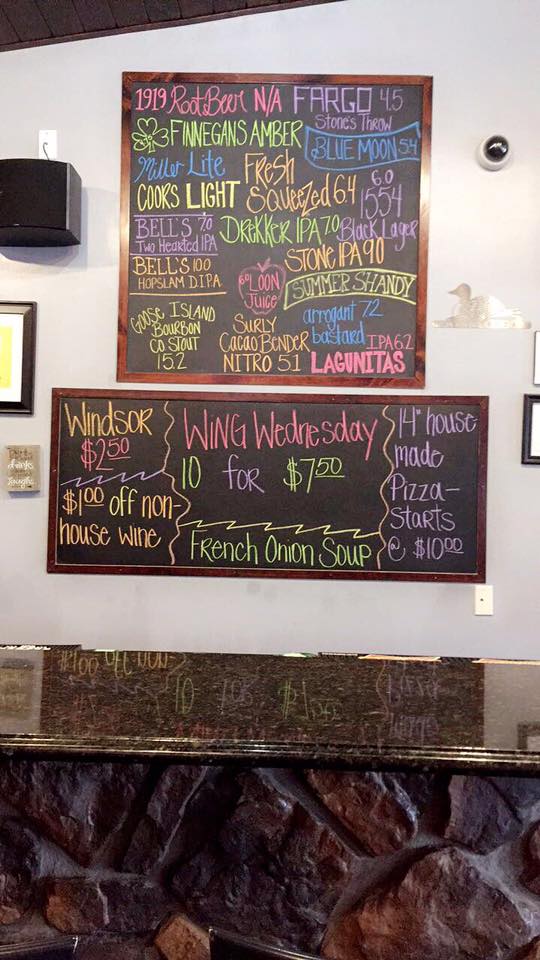 1919 Root Beer N/A FARGO 4.5
Stone's Throw
FINNEGANS AMBER
BLUE MOON 5.4
Miller Lite
FRESH
SQueeZed 6.4
COOKS LIGHT
6.0
1554
Black Lager
BELL'S 7.0
TWO HEARTED IPA
DREKKER IPA 7.0
STONE IPA 9.0
BELL'S 10.0
HOPSLAM D.I.PA.
LOON
JUICE
SUMMER SHANDY
GOOSE ISLAND
BOURBON
CO STOUT
15.2
SURLY
CACAO BENDER
NITRO 5.1
arrogant 7.2
bastard
IPA 6.2
LAGUNITAS
WINDSOR
$2.50
$1.00 off non-
house wine
WING Wednesday
10 for $7.50
French Onion Soup
14" house
made
Pizza-
starts
@ $10.00
drinks
laughs